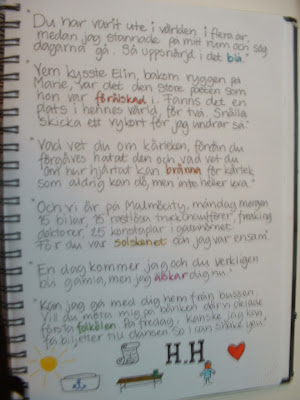 "Du har varit ute i världen i flera år,
medan jag stannade på mitt rum och såg
dagarna gå. Så uppenbárd i det blå."
"Vem kysste Elin, bakom ryggen på
Marie, var det den store poeten som
hon var förälskad i. Fanns det en
plats i hennes värld, för två. Snälla
skicka ett vykort för jag undrar så."
"Vad vet du om kärleken, förrän du
förgäves hatat den och vad vet du
om hur hjärtat kan bränna för kärlek,
som aldrig kan dö, men inte heller leva."
"Och vi är på Malmöcity, måndag morgon
15 bilar, 15 rastlösa truckchaufförer,
doktorer, 25 konstaplar i gathörnet
För du var solskenet och jag var ensam"
"En dag kommer jag och du verkligen
bli gamla, men jag älskar dig nu."
"Kan jag gå med dig hem från bussen.
Vill du möta mig på bänken där
första folkölen på fredag, kanske, jag kan
få biljetter till dansen so I can shake you."
H.H